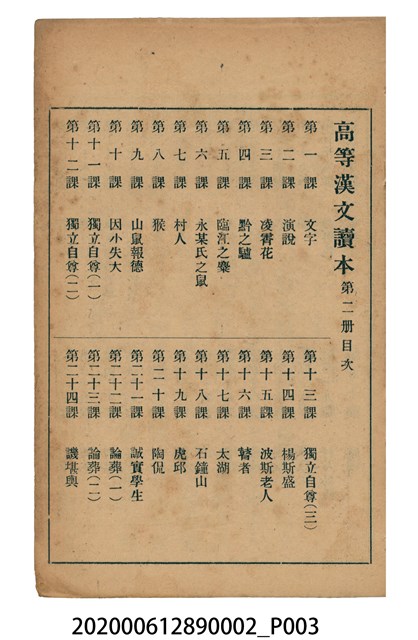 高等漢文讀本 第二册目次
第一課 文字
第二課 演說
第三課 凌霄花
第四課 黔之驢
第五課 臨江之麋
第六課 永某氏之鼠
第七課 村人
第八課 猴
第九課 山鼠報德
第十課 因小失大
第十一課 獨立自尊(一)
第十二課 獨立自尊(二)
第十三課 獨立自尊(三)
第十四課 楊斯盛
第十五課 波斯老人
第十六課 瞽者
第十七課 太湖
第十八課 石鐘山
第十九課 虎邱
第二十課 陶侃
第二十一課 誠實學生
第二十二課 論葬(一)
第二十三課 論葬(二)
第二十四課 譏堪輿
202000612890002_P003